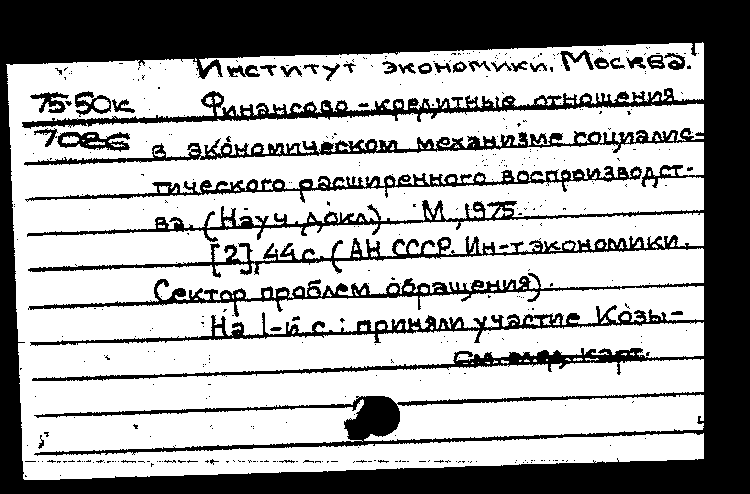 Институт экономики. Москва.
75-50к Финансово-кредитные отношения
7086 в экономическом механизме социалис-
тического расширенного воспроизводст-
ва. (Науч. докл). М., 1975.
[2], 44 с. (АН СССР. Ин-т экономики.
Сектор проблем обращения).
На 1-й с.: приняли участие Козы-
См. след. карт.